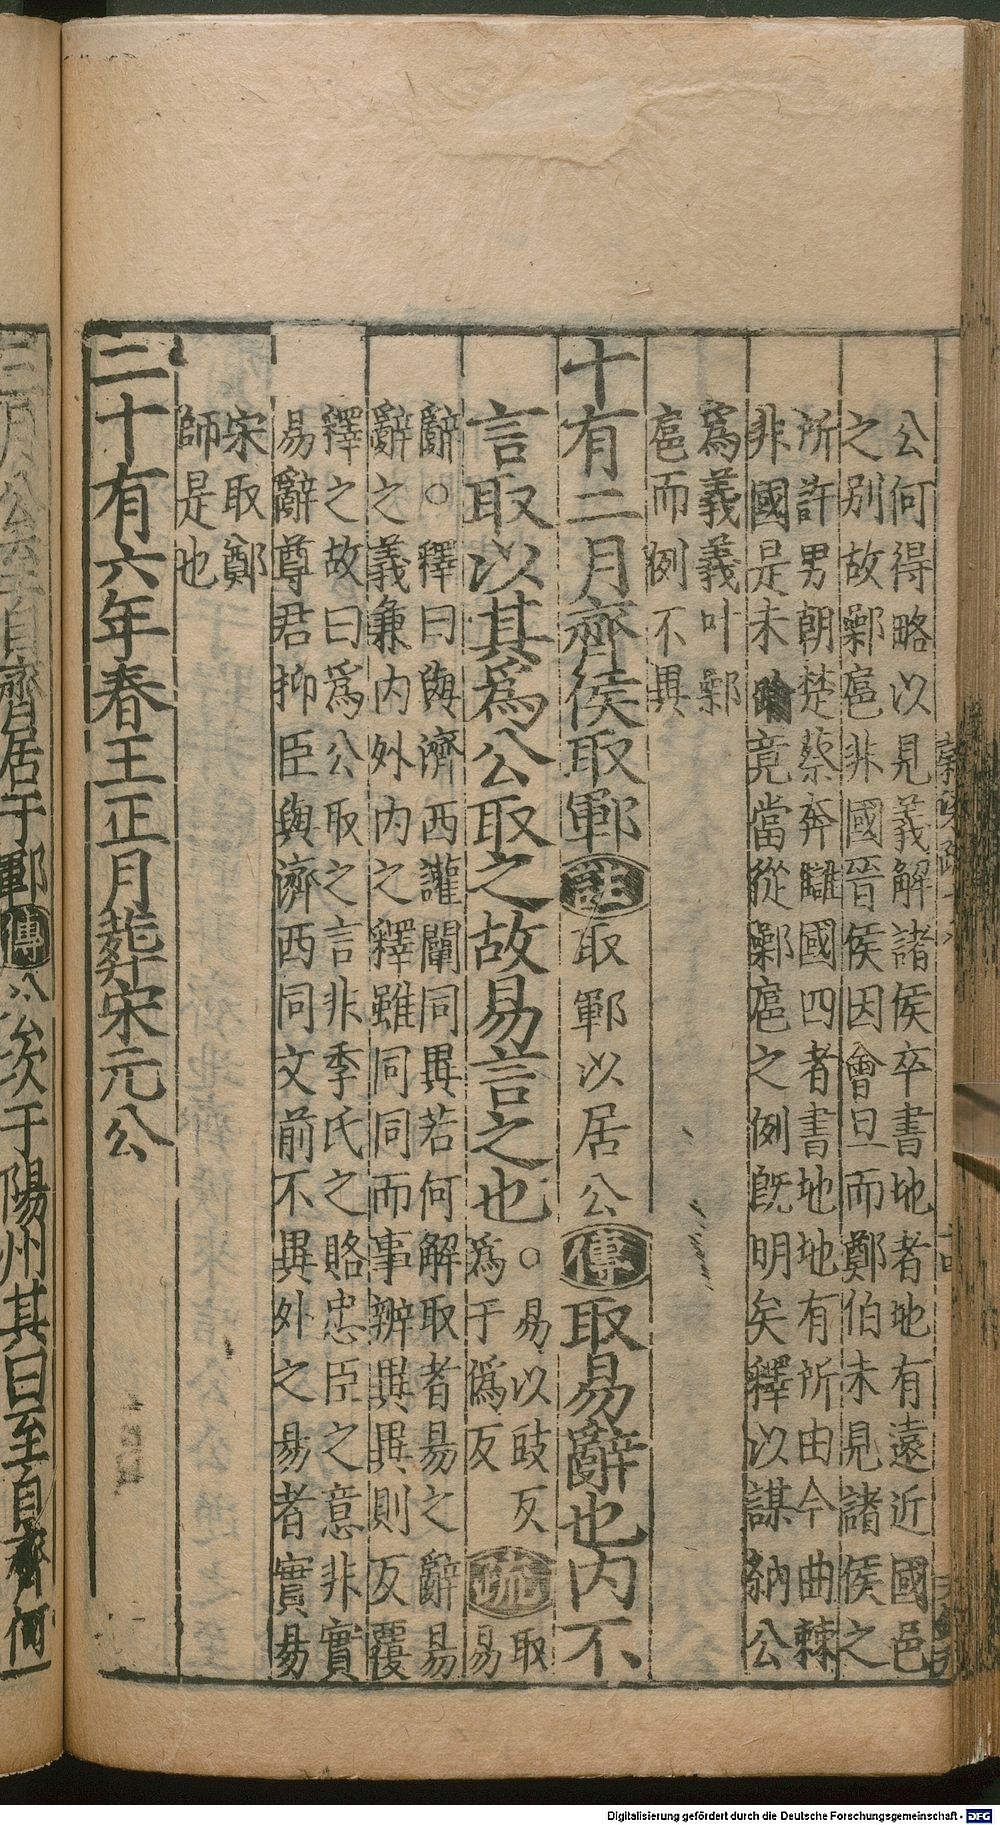 公何得略以見義解諸侯卒書地者地有遠近國邑
之別故鄵扈非國晉侯因會旦而鄭伯未見諸侯之
所許男朝楚蔡奔讎國四者書地地有所由今曲棘
非國是未踰竟當從鄵扈之例旣明矣釋以謀納公
爲義義叶鄵
扈而例不異
十有二月齊侯取鄆註取鄆以居公傳取易辭也內不
言取以其爲公取之故易言之也○易以豉反
爲于僞反疏取易
辭○釋曰與濟西讙闡同異若何解取者易之辭易
辭之義兼內外內之釋雖同同而事辨異異則反覆
釋之故曰爲公取之言非季氏之賂忠臣之意非實
易辭尊君抑臣與濟西同文前不異外之易者實易
宋取鄭
師是也
二十有六年春王正月葬宋元公
三月公至自齊居于鄆傳公次于陽州其曰至自齊何
Digitalisierung gefördert durch die Deutsche Forschungsgemeinschaft - DFG